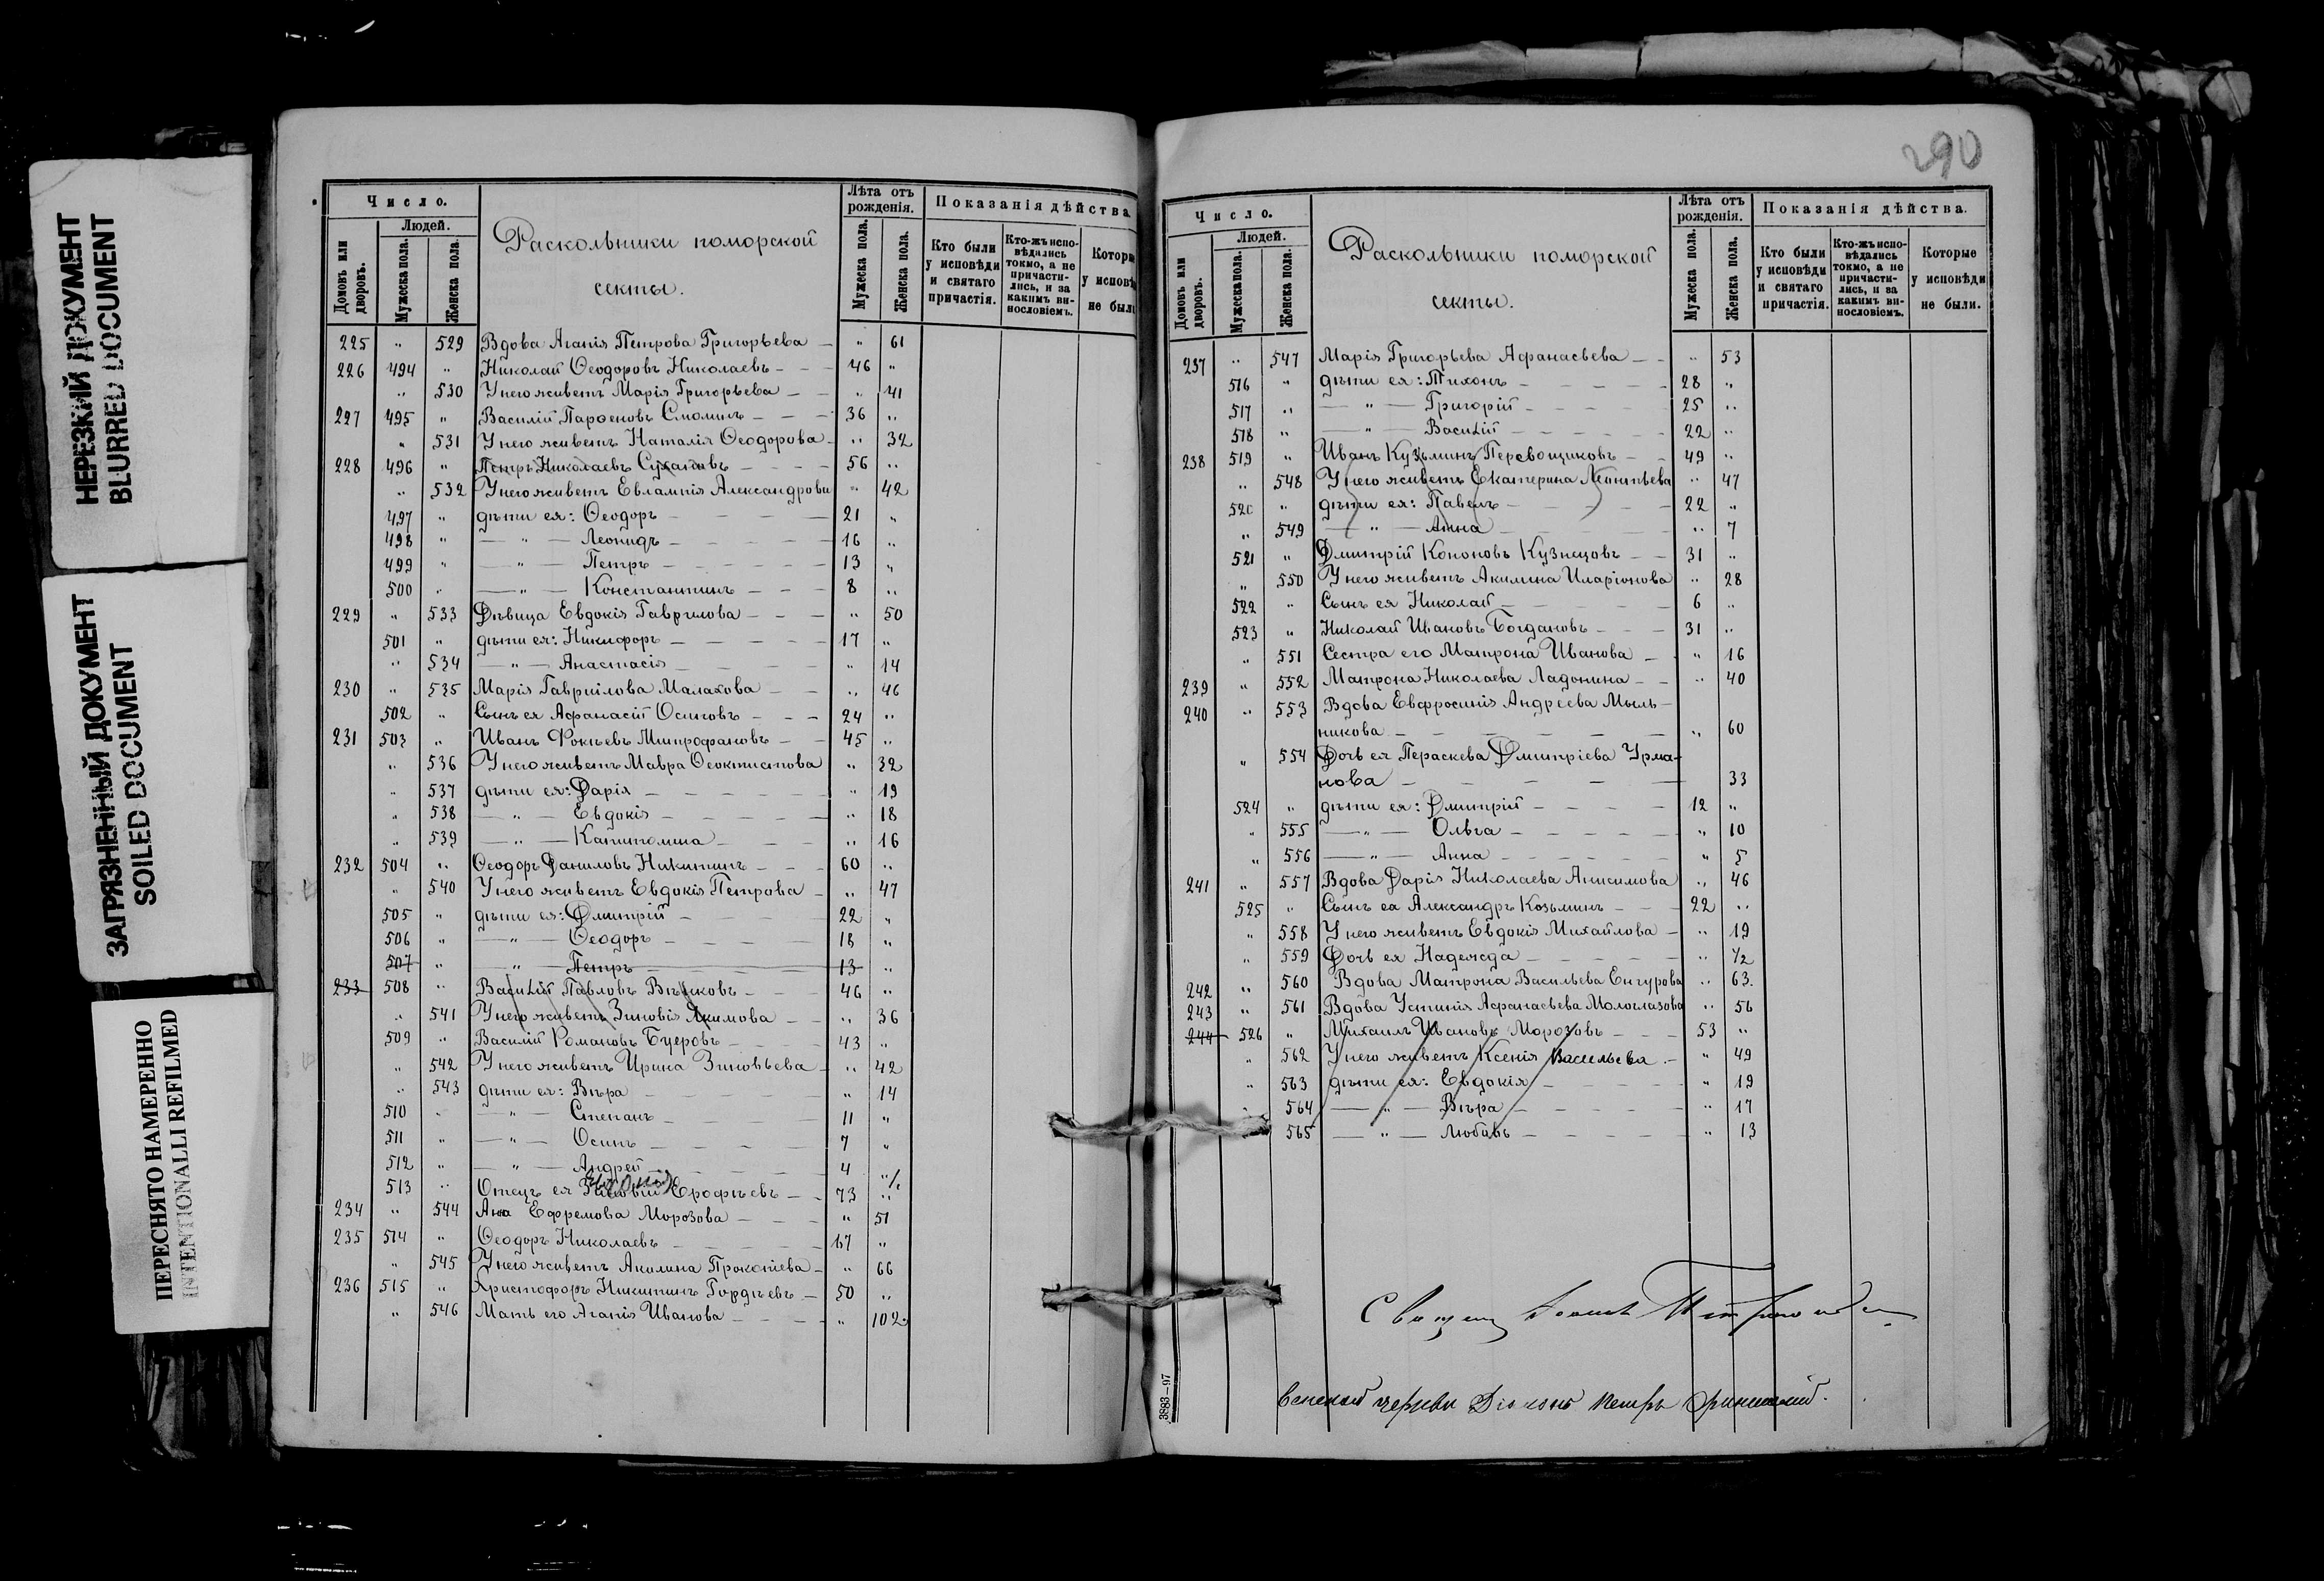 НЕРЕЗКИЙ ДОКУМЕНТ
BLURRED DOCUMENT
ЗАГРЯЗНЕННЫЙ ДОКУМЕНТ
SOILED DOCUMENT
ПЕРЕСНЯТО НАМЕРЕННО
INTENTIONALLI REFILMED
Число.
Людей.
Домовъ или дворовъ.
Мужеска пола.
Женска пола.
Раскольники поморской
секты.
Лѣта отъ рожденія.
Мужеска пола.
Женска пола.
Показанія дѣйства.
Кто были у исповѣди и святаго причастія.
Кто-жъ исповѣдались токмо, а не причастились, и за какимъ винословіемъ.
225 " 529 Вдова Агапія Петрова Григорьева — " 61
226 494 " Николай Ѳеодоровъ Николаевъ — 46 "
" 530 У него живетъ Марія Григорьева — " 41
227 495 " Василій Парѳеновъ Смолинъ — 36 "
" 531 У него живетъ Наталія Ѳеодорова — " 32
228 496 " Петръ Николаевъ Сухановъ — 56 "
" 532 У него живетъ Евлампія Александрова " 42
497 " дѣти ея: Ѳеодоръ — 21 "
498 " — " — Леонидъ — 16 "
499 " — " — Петръ — 13 "
500 " — " — Константинъ — 8 "
229 " 533 Дѣвица Евдокія Гаврилова — " 50
501 " дѣти ея: Никифоръ — 17 "
" 534 — " — Анастасія — " 14
230 " 535 Марія Гавриілова Малахова — " 46
502 " Сынъ ея Афанасій Осиповъ — 24 "
231 503 " Иванъ Фокѣевъ Митрофановъ — 45 "
" 536 У него живетъ Мавра Ѳеоктистова " 32
" 537 дѣти ея: Дарія — " 19
" 538 — " — Евдокія — " 18
" 539 — " — Капитолина — " 16
232 504 " Ѳеодоръ Даниловъ Никитинъ — 60 "
" 540 У него живетъ Евдокія Петрова — " 47
505 " дѣти ея: Дмитрій — 22 "
506 " — " — Ѳеодоръ — 18 "
507 " — " — Петръ — 13 "
233 508 " Василій Павловъ — 46 "
" 541 У него живетъ Зиновія Якимова — " 36
509 " Василій Романовъ — 43 "
" 542 У него живетъ Ирина Зиновьева — " 42
" 543 дѣти ея: Вѣра — " 14
510 " — " — Степанъ — 11 "
511 " — " — Осипъ — 7 "
512 " — " — Андрей — 4 "
513 " Отецъ ея Зиновій Ерофѣевъ — 73 "
234 " 544 Анна Ефремова Морозова — " 51
235 514 " Ѳеодоръ Николаевъ — 67 "
" 545 У него живетъ Акилина Прокопіева — " 66
236 515 " Христофоръ Никитинъ Гордѣевъ — 50 "
" 546 Мать его Агапія Иванова — " 102
290
Число.
Людей.
Домовъ или дворовъ.
Мужеска пола.
Женска пола.
Раскольники поморской
секты.
Лѣта отъ рожденія.
Мужеска пола.
Женска пола.
Показанія дѣйства.
Кто были у исповѣди и святаго причастія.
Кто-жъ исповѣдались токмо, а не причастились, и за какимъ винословіемъ.
Которые у исповѣди не были.
237 " 547 Марія Григорьева Афанасьева — " 53
516 " дѣти ея: Тихонъ — 28 "
517 " — " — Григорій — 25 "
518 " — " — Василій — 22 "
238 519 " Иванъ Кузьминъ Перевощиковъ — 49 "
" 548 У него живетъ Екатерина Леонтьева " 47
520 " дѣти ея: Павелъ — 22 "
" 549 — " — Анна — " 7
521 " Дмитрій Кононовъ Кузнецовъ — 31 "
" 550 У него живетъ Акилина Иларіонова " 28
522 " Сынъ ея Николай — 6 "
523 " Николай Ивановъ Богдановъ — 31 "
" 551 Сестра его Матрона Иванова — " 16
239 " 552 Матрона Николаева Ладонина — " 40
240 " 553 Вдова Евфросинія Андреева Мыль-
никова — " 60
" 554 Дочь ея Параскева Дмитріева Урма-
нова — 33
524 " дѣти ея: Дмитрій — 12 "
" 555 — " — Ольга — " 10
" 556 — " — Анна — " 5
241 " 557 Вдова Дарія Николаева Анисимова " 46
525 " Сынъ ея Александръ Козьминъ — 22 "
" 558 У него живетъ Евдокія Михайлова — " 19
" 559 Дочь ея Надежда — " 1/2
242 " 560 Вдова Матрона Васильева Енгурова " 63.
243 " 561 Вдова Устинія Афанасьева Мологлазова " 56
244 526 " Михаилъ Ивановъ Морозовъ — 53 "
" 562 У него живетъ Ксенія Васильева — " 49
" 563 дѣти ея: Евдокія — " 19
564 — " — Вѣра — " 17
565 — " — Любовь — " 13
церкви Діаконъ Петръ
3883—97